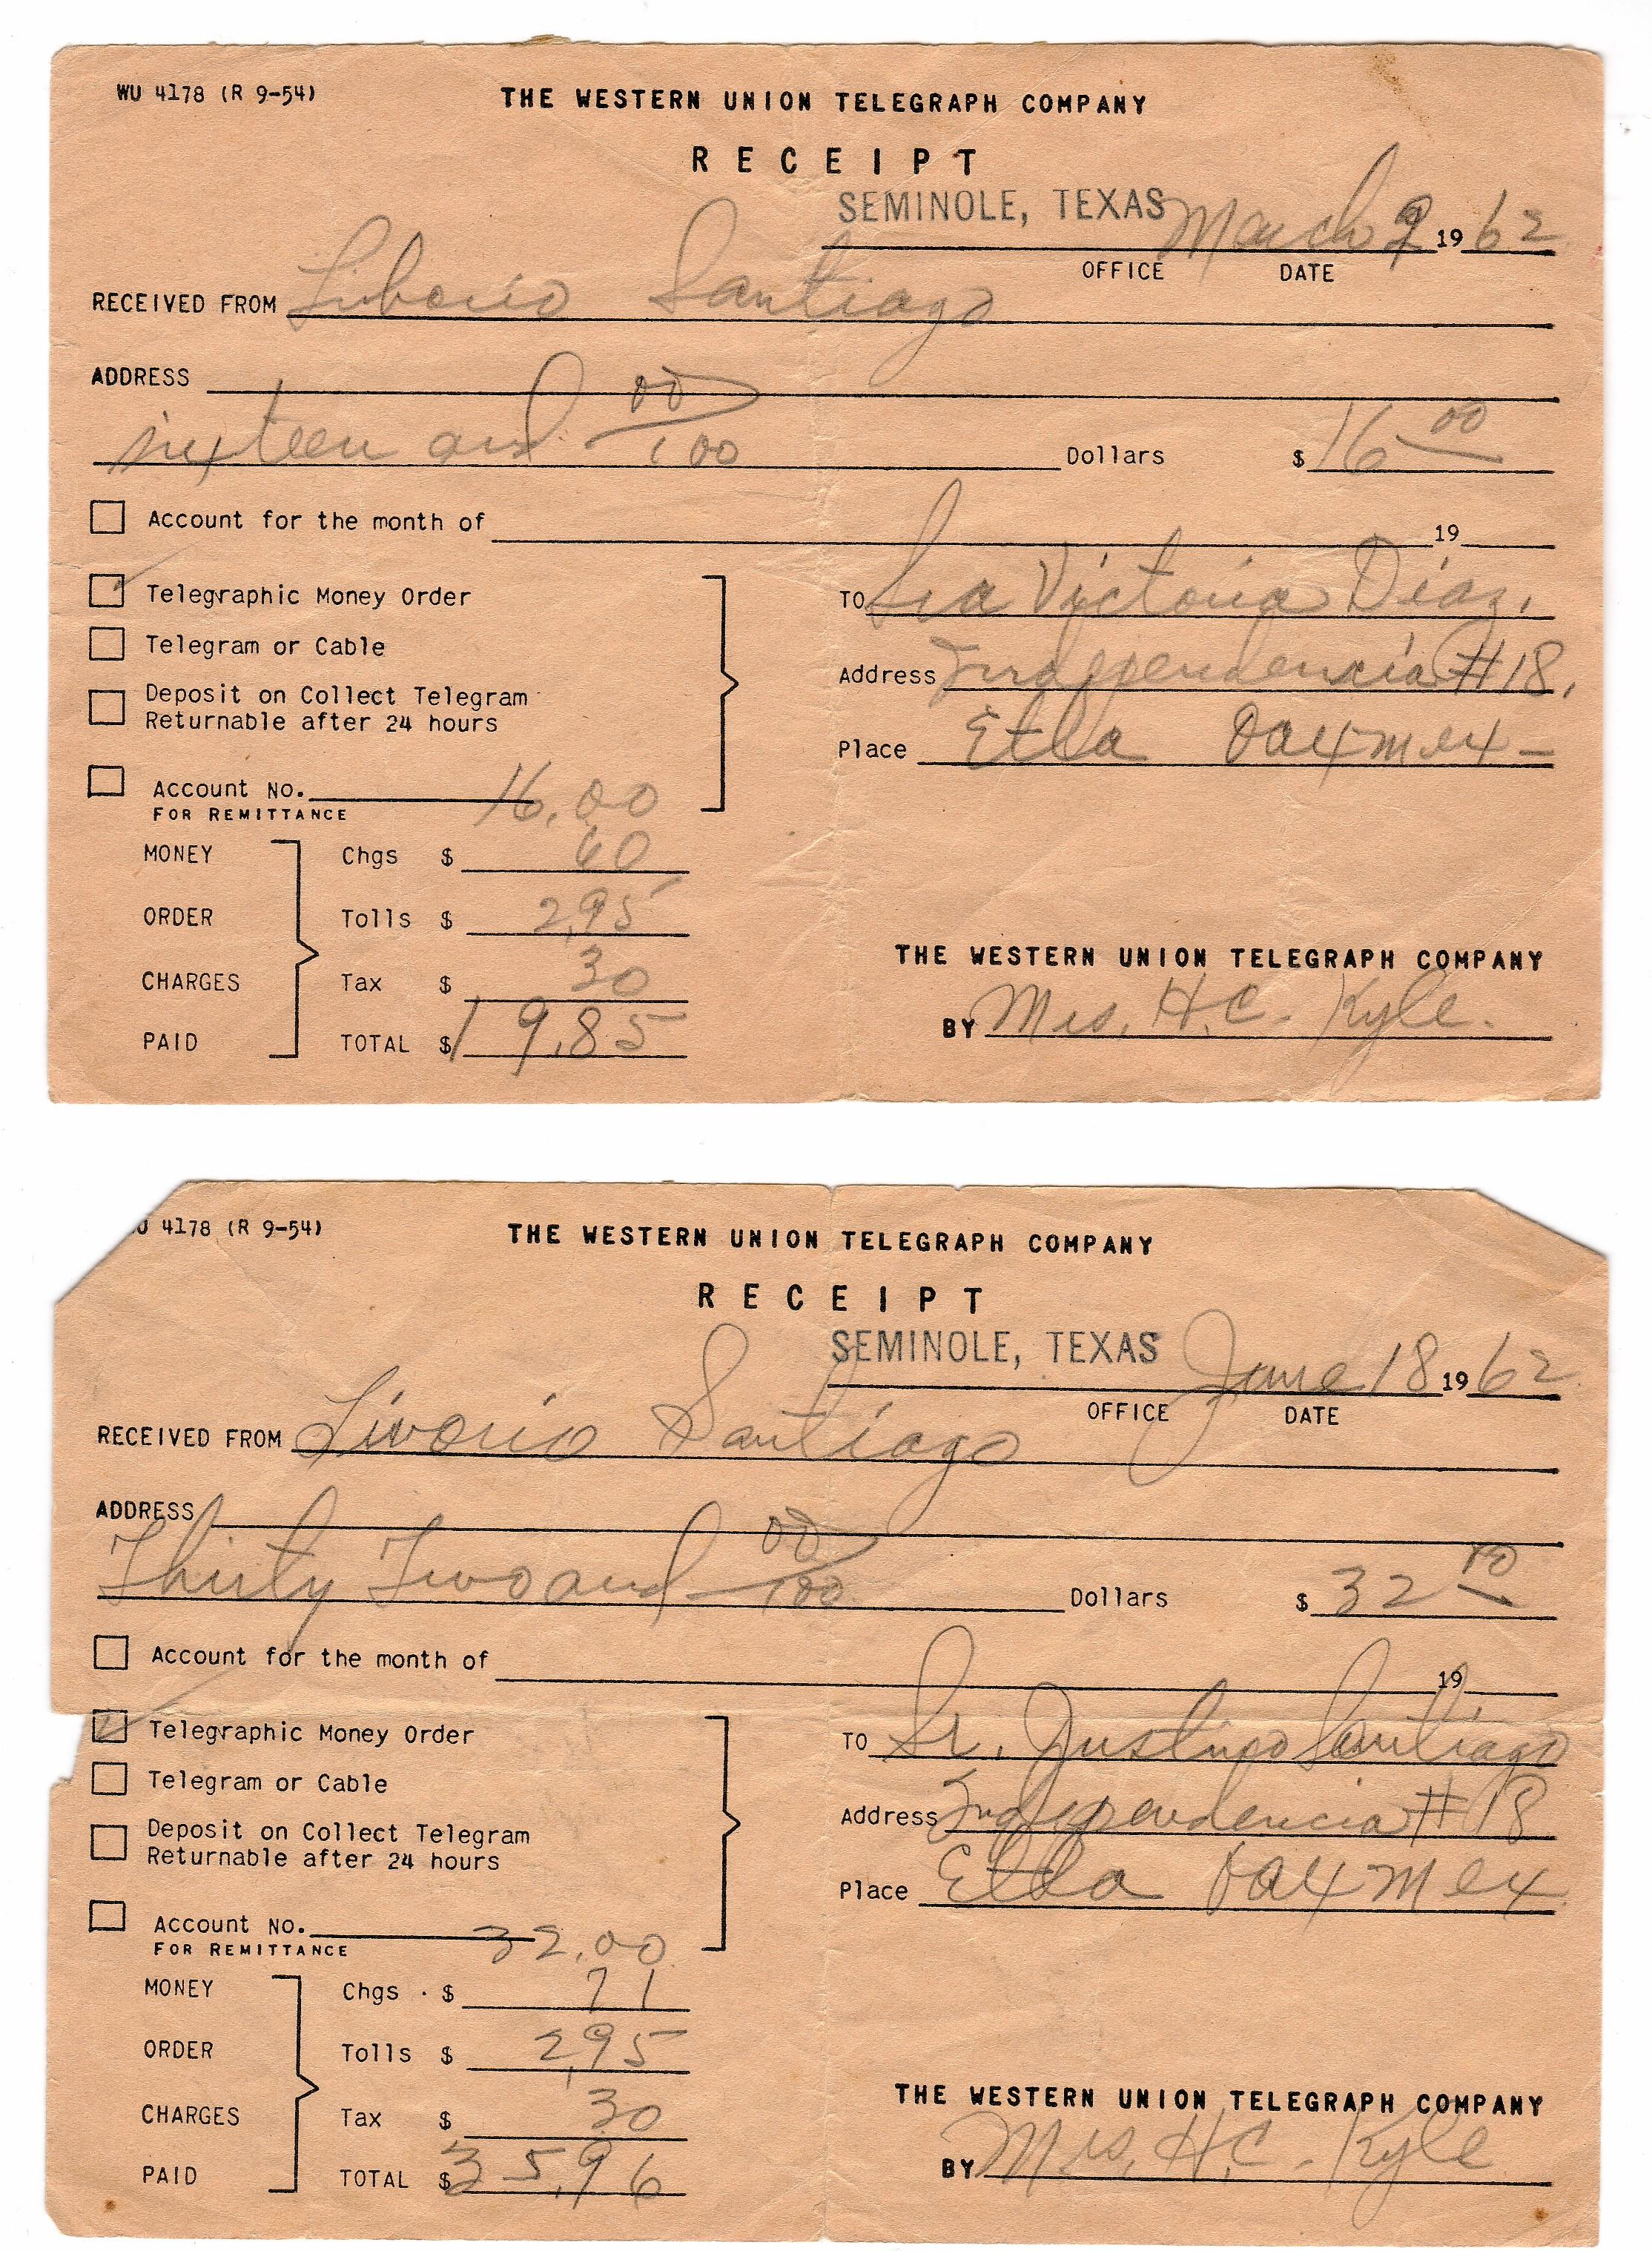 WU 4178 (R 9-54)
THE WESTERN UNION TELEGRAPH COMPANY
RECEIPT
SEMINOLE, TEXAS March 9 1962
OFFICE DATE
RECEIVED FROM Liberio Santiago
ADDRESS
sixteen and 00/100 Dollars $16 00
Account for the month of 19
Telegraphic Money Order
TO Sra Victoria Diaz.
Telegram or Cable
Address Independencia #18.
Deposit on Collect Telegram
Returnable after 24 hours
Place Etla Oax Mex -
Account No. 16.00
FOR REMITTANCE
MONEY Chgs $ 60
ORDER Tolls $ 2.95
THE WESTERN UNION TELEGRAPH COMPANY
CHARGES Tax $ 30
BY Mrs. H.C. Kyle.
PAID TOTAL $19.85
U 4178 (R 9-54)
THE WESTERN UNION TELEGRAPH COMPANY
RECEIPT
SEMINOLE, TEXAS June 18 1962
OFFICE DATE
RECEIVED FROM Livorio Santiago
ADDRESS
Thirty Two and 00/100 Dollars $32 00
Account for the month of 19
Telegraphic Money Order
TO Sr. Justino Santiago
Telegram or Cable
Address Independencia #18
Deposit on Collect Telegram
Returnable after 24 hours
Place Etla Oax Mex
Account No. 32.00
FOR REMITTANCE
MONEY Chgs $ 71
ORDER Tolls $ 2.95
THE WESTERN UNION TELEGRAPH COMPANY
CHARGES Tax $ 30
BY Mrs. H.C. Kyle
PAID TOTAL $35.96